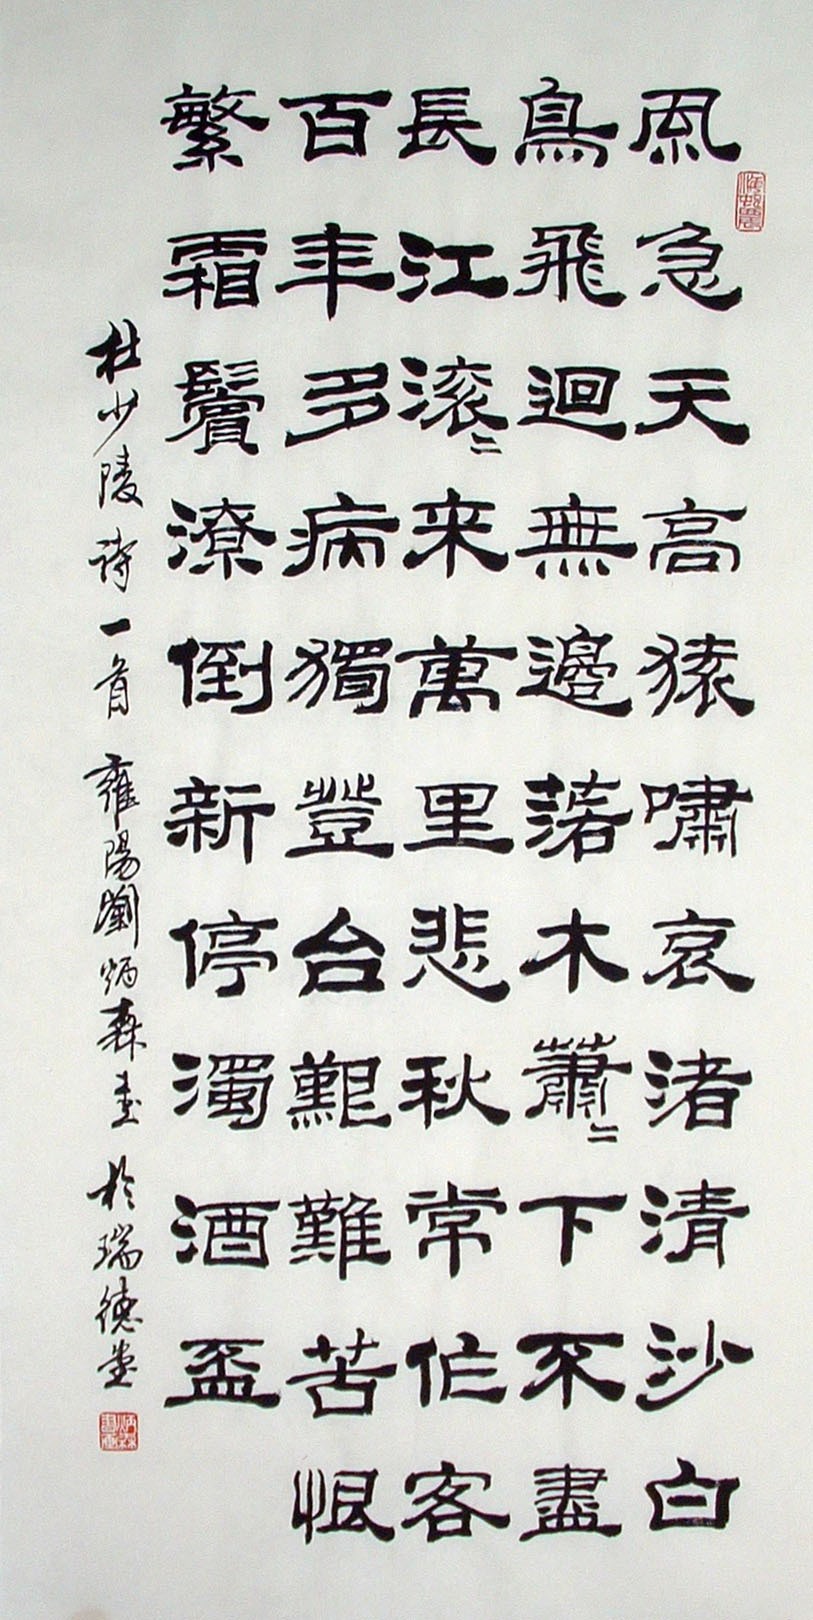 風急天高猿嘯哀渚清沙白
鳥飛迴無邊落木蕭〻下不盡
長江滚〻来萬里悲秋常作客
百年多病獨登台艱難苦恨
繁霜鬢潦倒新停濁酒盃
杜少陵诗一首 雍陽劉炳森書 於瑞德堂
炳森